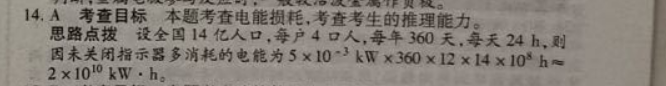 14. A 考查目标 本题考查电能损耗,考查考生的推理能力。
思路点拨 设全国 14 亿人口,每户 4 口人,每年 360 天,每天 24 h,则
因未关闭指示器多消耗的电能为 5×10⁻³ kW×360×12×14×10⁸ h≈
2×10¹⁰ kW·h。